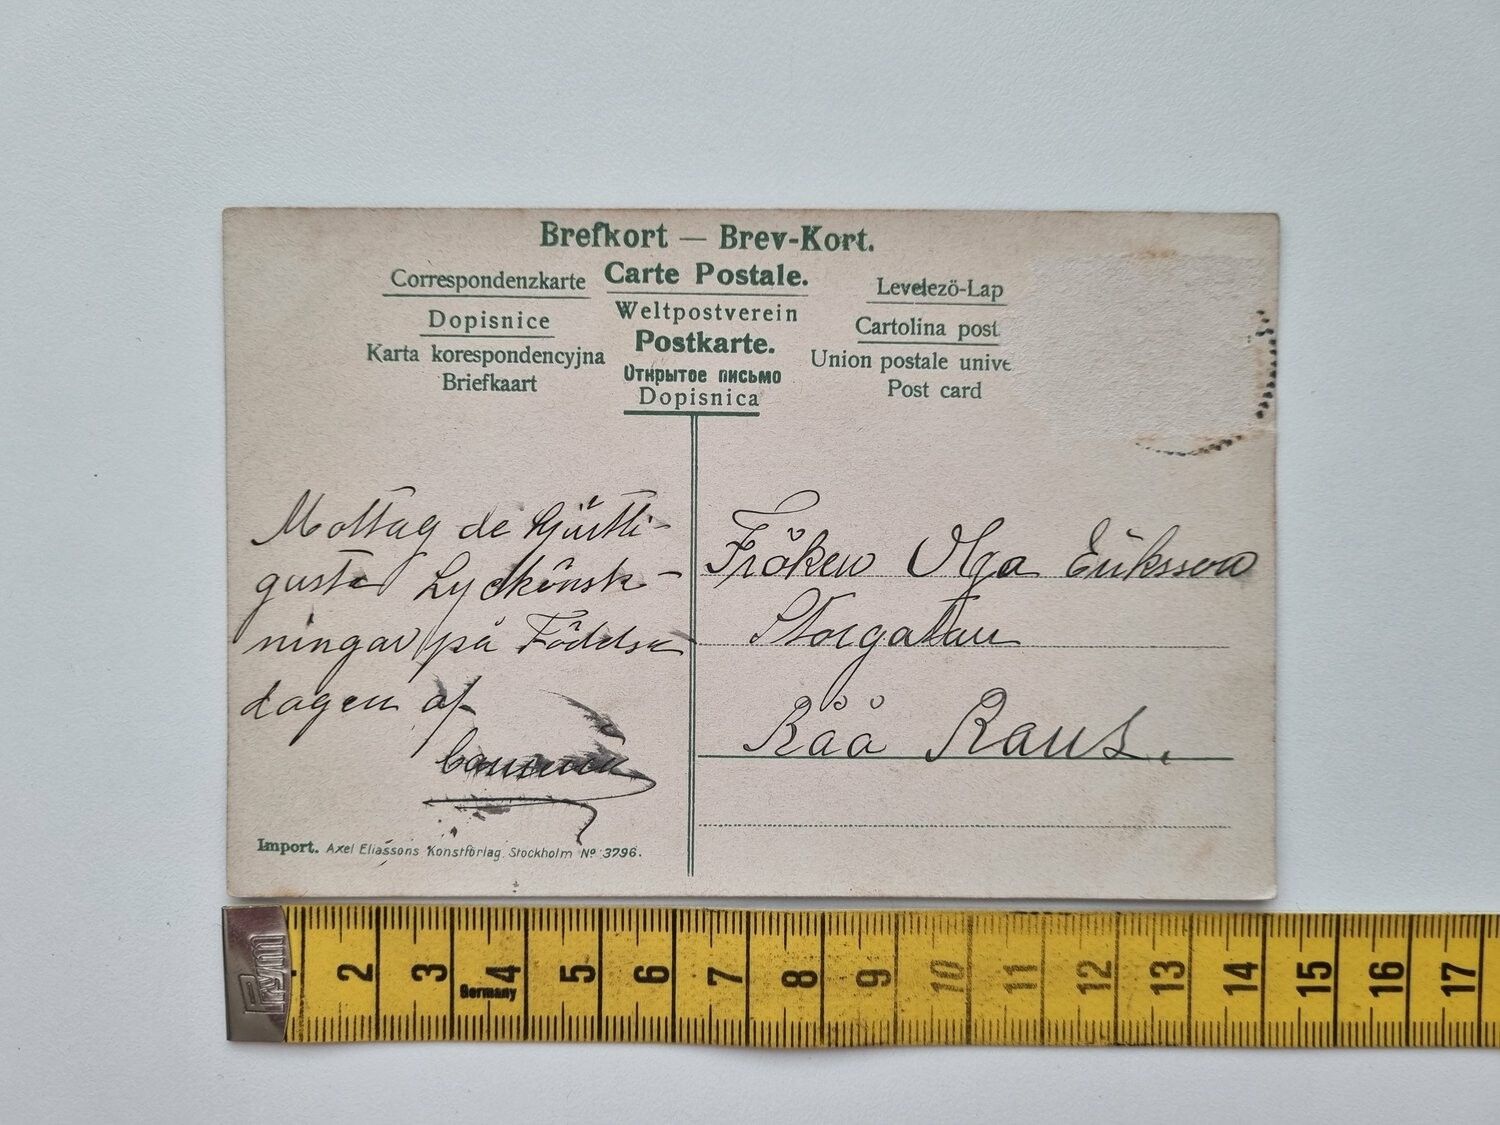 Brefkort — Brev-Kort.
Carte Postale.
Correspondenzkarte
Dopisnice
Karta korespondencyjna
Briefkaart
Weltpostverein
Postkarte.
Открытое письмо
Dopisnica
Levelezö-Lap
Cartolina post
Union postale unive
Post card
Mottag de hjärtli-
gusta Lyckönsk-
ningar på Födelse
dagen af
Fröken Olga Eriksson
Storgatan
Råå Raus.
Import. Axel Eliassons Konstförlag. Stockholm Nº 3796.
Prym
2 3 4 5 6 7 8 9 10 11 12 13 14 15 16 17
Germany